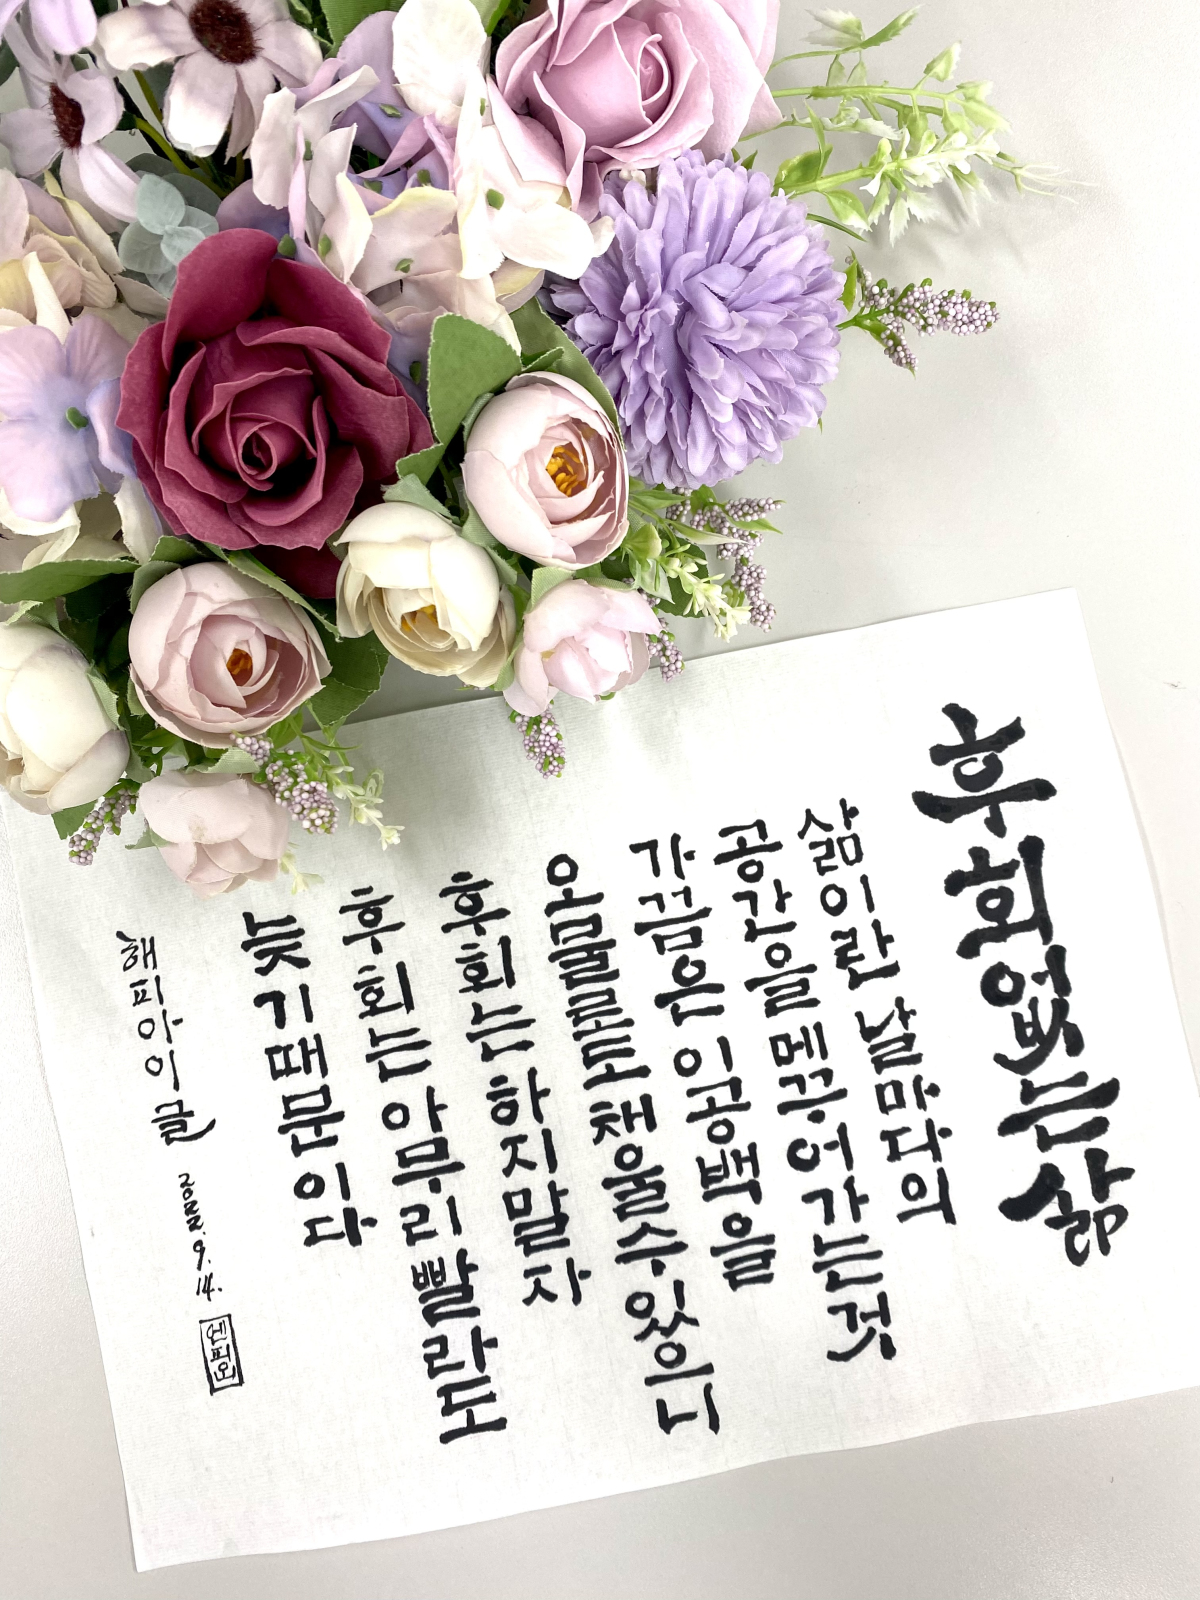 후회없는삶
삶이란 날마다의
공간을 메꾸어가는것
가끔은 이공백을
오물로도 채울수있으니
후회는 하지말자
후회는 아무리 빨라도
늦기때문이다
해피아이 글
2022. 9. 14.
엔피오